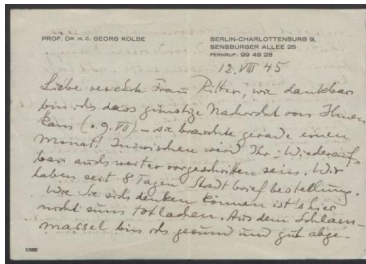 PROF. DR. H. C. GEORG KOLBE
BERLIN-CHARLOTTENBURG 9,
SENSBURGER ALLEE 25
FERNRUF: 99 49 26
12. VIII 45
Liebe Frau Ritter, wie dankbar
bin ich dass günstige Nachricht von Ihnen
kam (v. 9. VII) – sie brauchte gerade einen
Monat! Inzwischen wird Ihr Wiederauf-
bau auch weiter vorgeschritten sein. Wir
haben seit 8 Tagen Stadtbriefbestellung.
Wie Sie sich denken können ist es hier
nicht zum totlachen. Aus dem Schlam-
massel bin ich gesund und gut abge-